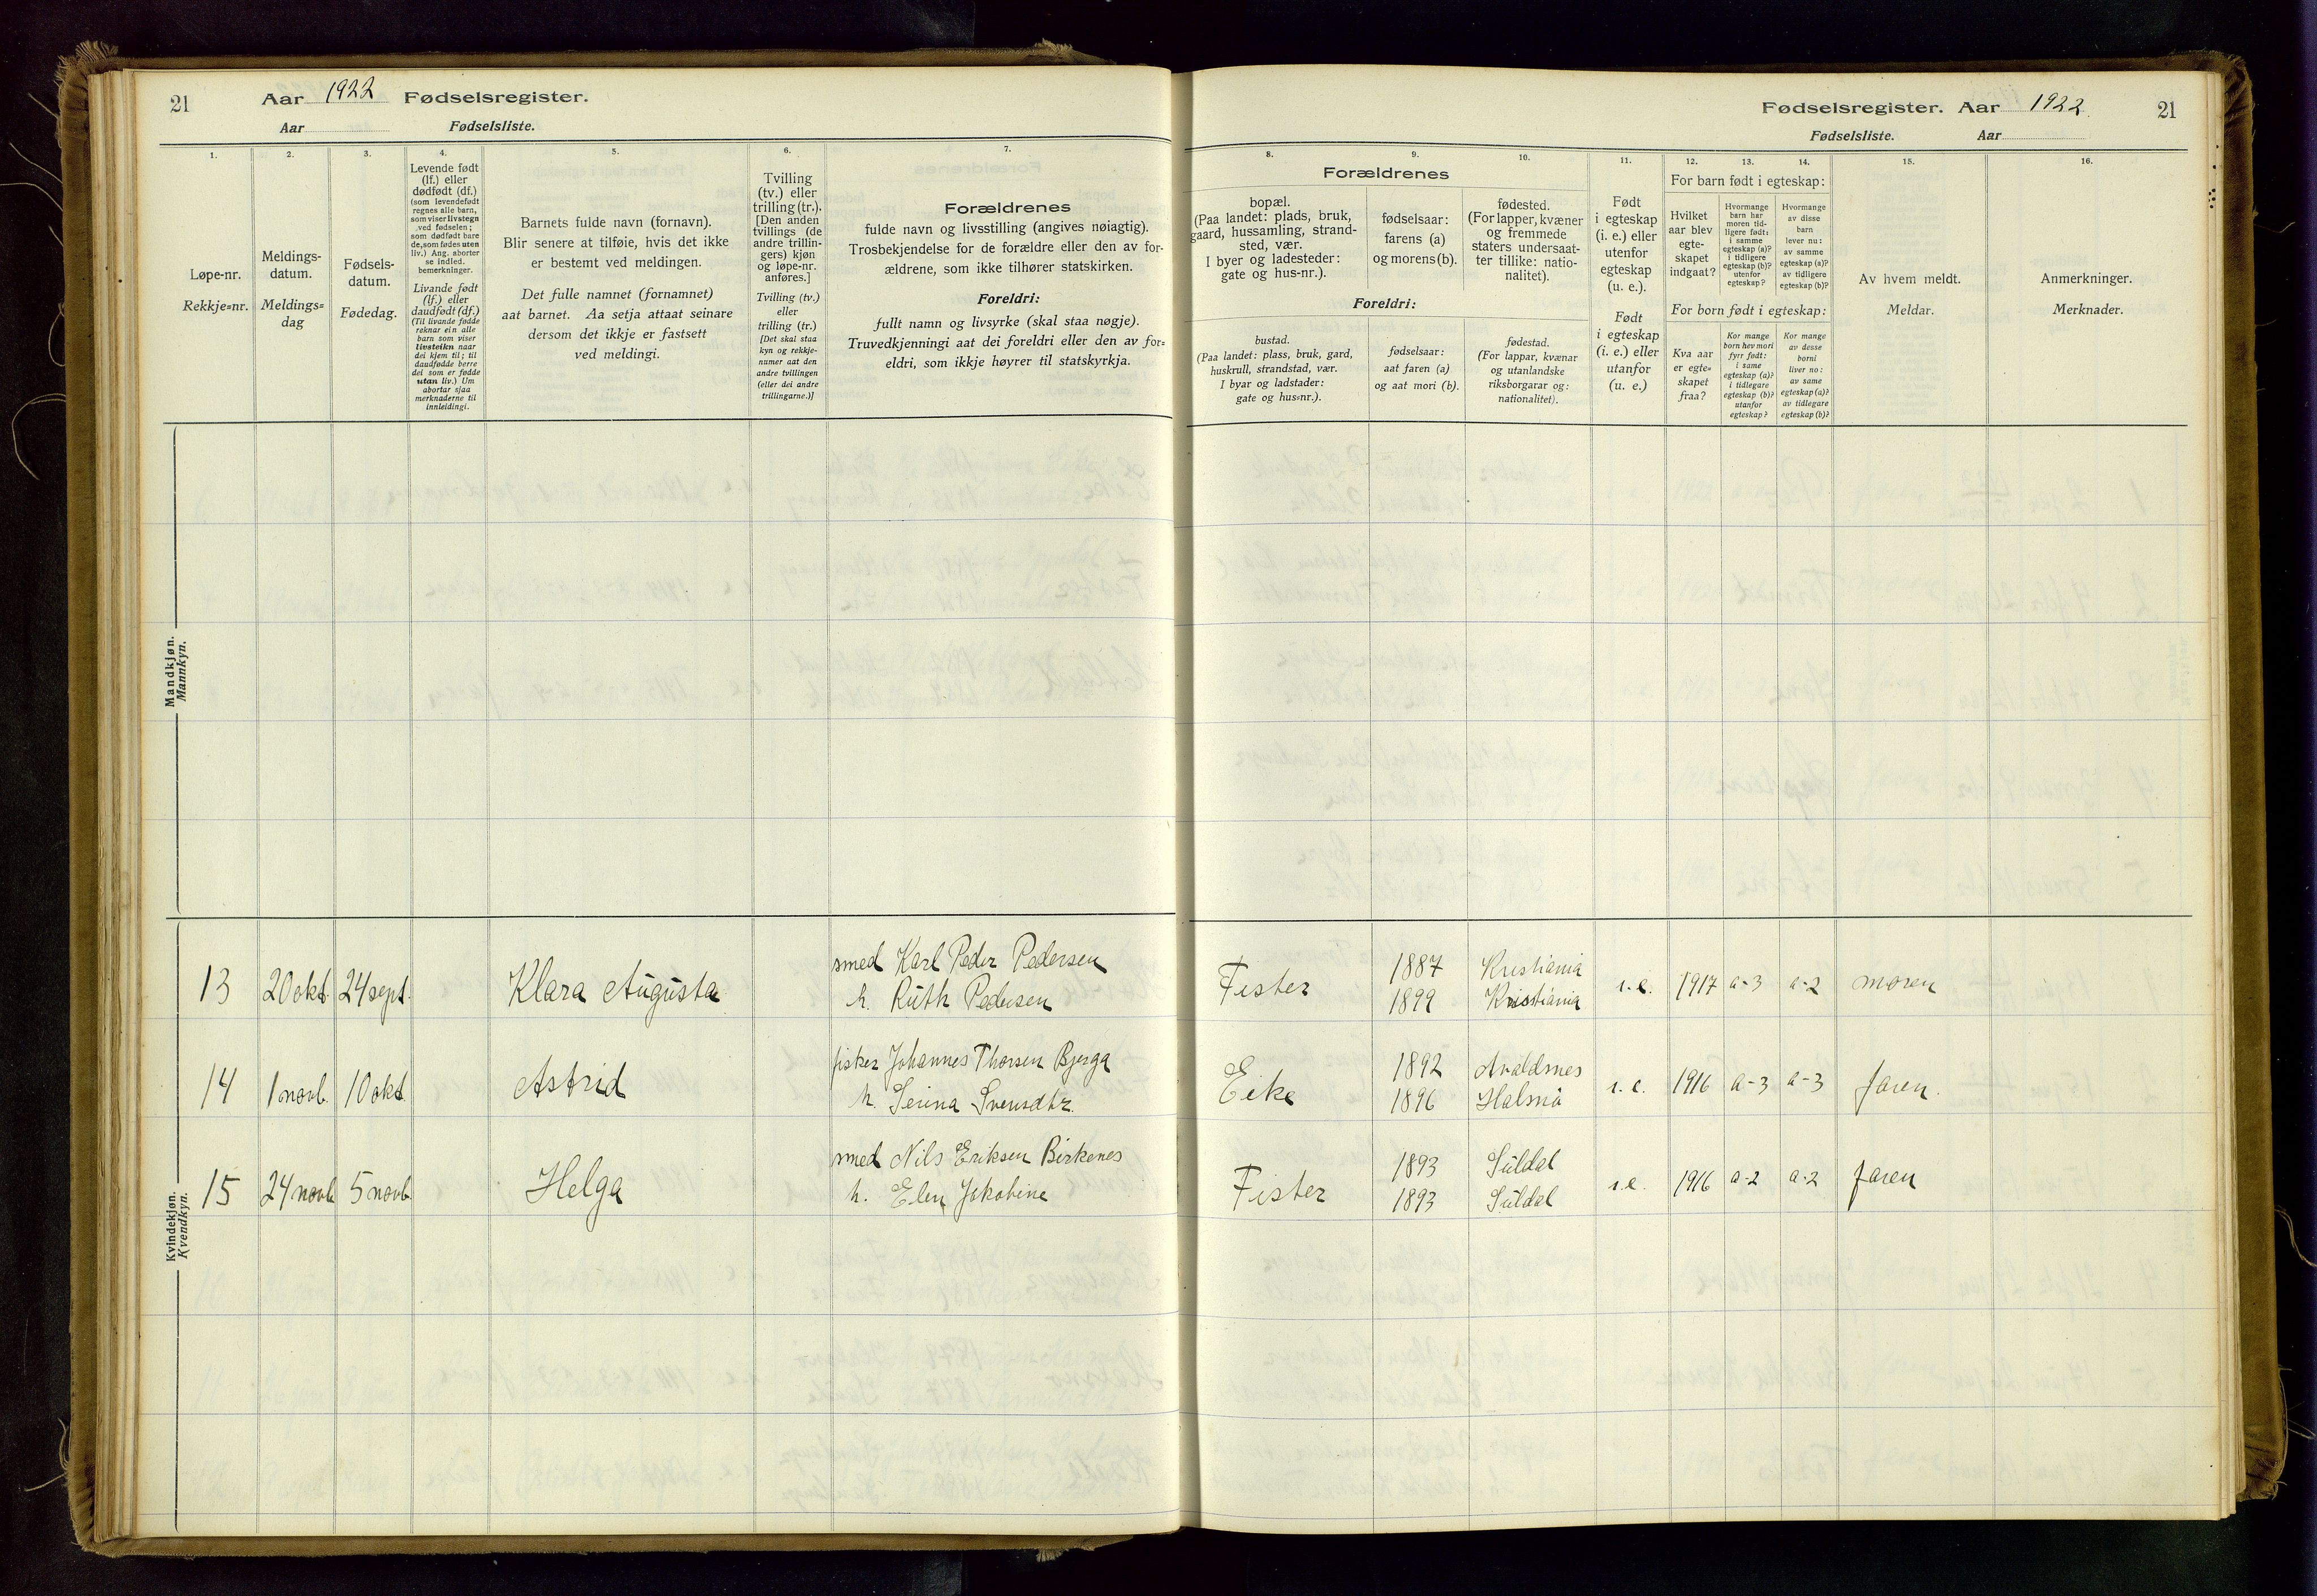 21 Aar 1922 Fødselsregister.
Aar Fødselsliste.
Fødselsregister. Aar 1922. 21
Fødselsliste. Aar
1.
Løpe-nr.
Rekkje=nr.
2.
Meldings-
datum.
Meldings=
dag
3.
Fødsels-
datum.
Fødedag.
4.
Levende født
(lf.) eller
dødfødt (df.)
(som levendefødt
regnes alle barn,
som viser livstegn
ved fødselen;
som dødfødt bare
de, som fødes uten
liv.) Ang. aborter
se indled.
bemerkninger.
Livande født
(lf.) eller
daudfødt (df.)
(Til livande fødde
reknar ein alle
barn som viser
livsteikn naar
dei kjem til; til
daudfødde berre
dei som er fødde
utan liv.) Um
abortar sjaa
merknaderne til
innleidingi.
5.
Barnets fulde navn (fornavn).
Blir senere at tilføie, hvis det ikke
er bestemt ved meldingen.
Det fulle namnet (fornamnet)
aat barnet. Aa setja attaat seinare
dersom det ikkje er fastsett
ved meldingi.
6.
Tvilling
(tv.) eller
trilling (tr.).
[Den anden
tvillings (de
andre trillin-
gers) kjøn
og løpe-nr.
anføres.]
Tvilling (tv.)
eller
trilling (tr.)
[Det skal staa
kyn og rekkje-
numer aat den
andre tvillingen
(eller dei andre
trillingarne.)]
7.
Forældrenes
fulde navn og livsstilling (angives nøiagtig).
Trosbekjendelse for de forældre eller den av for-
ældrene, som ikke tilhører statskirken.
Foreldri:
fullt namn og livsyrke (skal staa nøgje).
Truvedkjenningi aat dei foreldri eller den av for=
eldri, som ikkje høyrer til statskyrkja.
Forældrenes
8.
bopæl.
(Paa landet: plads, bruk,
gaard, hussamling, strand-
sted, vær.
I byer og ladesteder:
gate og hus-nr.).
9.
fødselsaar:
farens (a)
og morens (b).
10.
fødested.
(For lapper, kvæner
og fremmede
staters undersaat-
ter tillike: natio-
nalitet).
Foreldri:
bustad.
(Paa landet: plass, bruk, gard,
huskrull, strandstad, vær.
I byar og ladstader:
gate og hus=nr.).
fødselsaar:
aat faren (a)
og aat mori (b).
fødestad.
(For lappar, kvænar
og utanlandske
riksborgarar og:
nationalitet).
11.
Født
i egteskap
(i. e.) eller
utenfor
egteskap
(u. e.).
Født
i egteskap
(i. e.) eller
utanfor
(u. e.)
12. 13. 14.
For barn født i egteskap:
Hvilket
aar blev
egte-
skapet
indgaat?
Hvormange
barn har
moren tid-
ligere født:
i samme
egteskap (a)?
i tidligere
egteskap (b)?
utenfor
egteskap?
Hvormange
av disse
barn
lever nu:
av samme
egteskap (a)?
av tidligere
egteskap (b)?
For born født i egteskap:
Kva aar
er egte=
skapet
fraa?
Kor mange
born hev mori
fyrr født:
i same
egteskap (a)?
i tidlegare
egteskap (b)?
utanfor
egteskap?
Kor mange
av desse
borni
liver no:
av same
egteskap (a)?
av tidlegare
egteskap (b)?
15.
Av hvem meldt.
Meldar.
16.
Anmerkninger.
Merknader.
Mandkjøn.
Mannkyn.
Kvindekjøn.
Kvendkyn.
13 20 okt. 24 sept. Klara Augusta smed Karl Peder Pedersen Fister 1887 Kristiania i.e. 1917 a-3 a-2 moren
h. Ruth Pedersen 1899 Kristiania
14 1 novb. 10 okt. Astrid fisker Johannes Thorsen Bjerga Eike 1892 Avaldsnes i.e. 1916 a-3 a-3 faren.
h. Serina Svensdtr. 1896 Halsnø
15 24 novb 5 novb Helga smed Nils Eriksen Birkenes Fister 1893 Suldal i.e. 1916 a-2 a-2 faren
h. Elen Jakobine 1893 Suldal